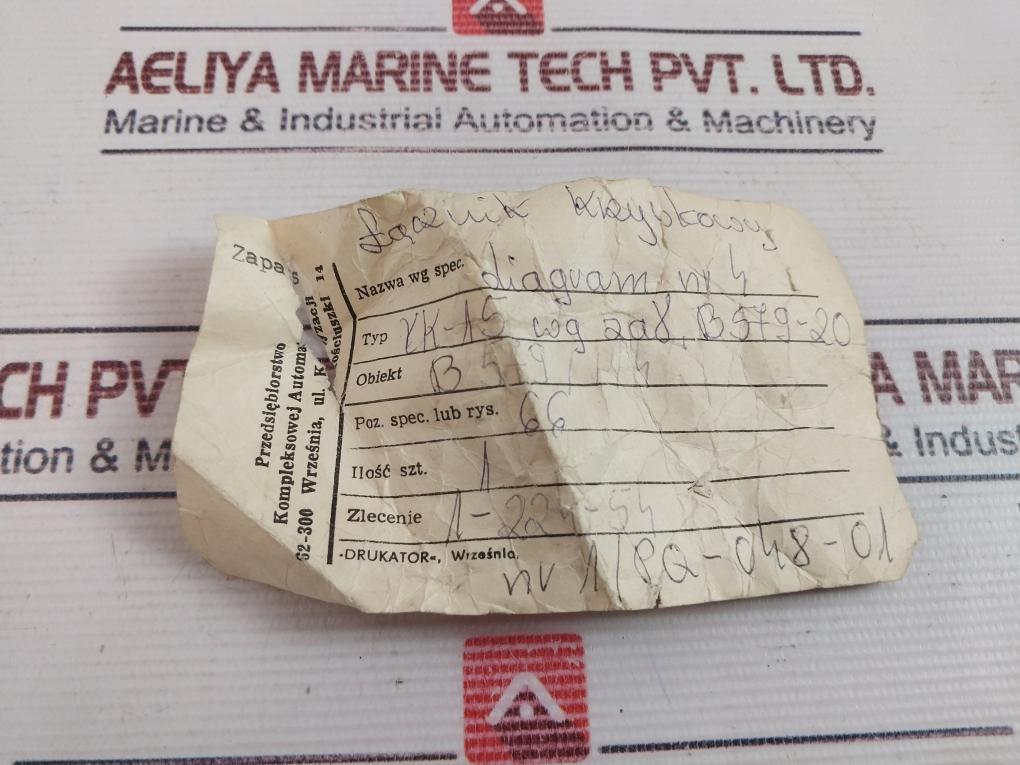 AELIYA MARINE TECH PVT. LTD.
Marine & Industrial Automation & Machinery
CH PV
tion & M
A MAR
& Indust
Zapas
Przedsiębiorstwo
Kompleksowej Automa yzacji
62-300 Września, ul. K ościuszki 14
Łącznik Krzywkowy
Nazwa wg spec. diagram nr 4
Typ ŁK-15 wg zał. B579-20
Obiekt B
Poz. spec. lub rys. 66
Ilość szt. 1
Zlecenie 1-224-54
"DRUKATOR", Września,
nr 1/PQ-048-01